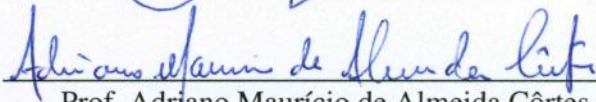 Adriano Maurício de Almeida Côrtes
Prof. Adriano Maurício de Almeida Côrtes